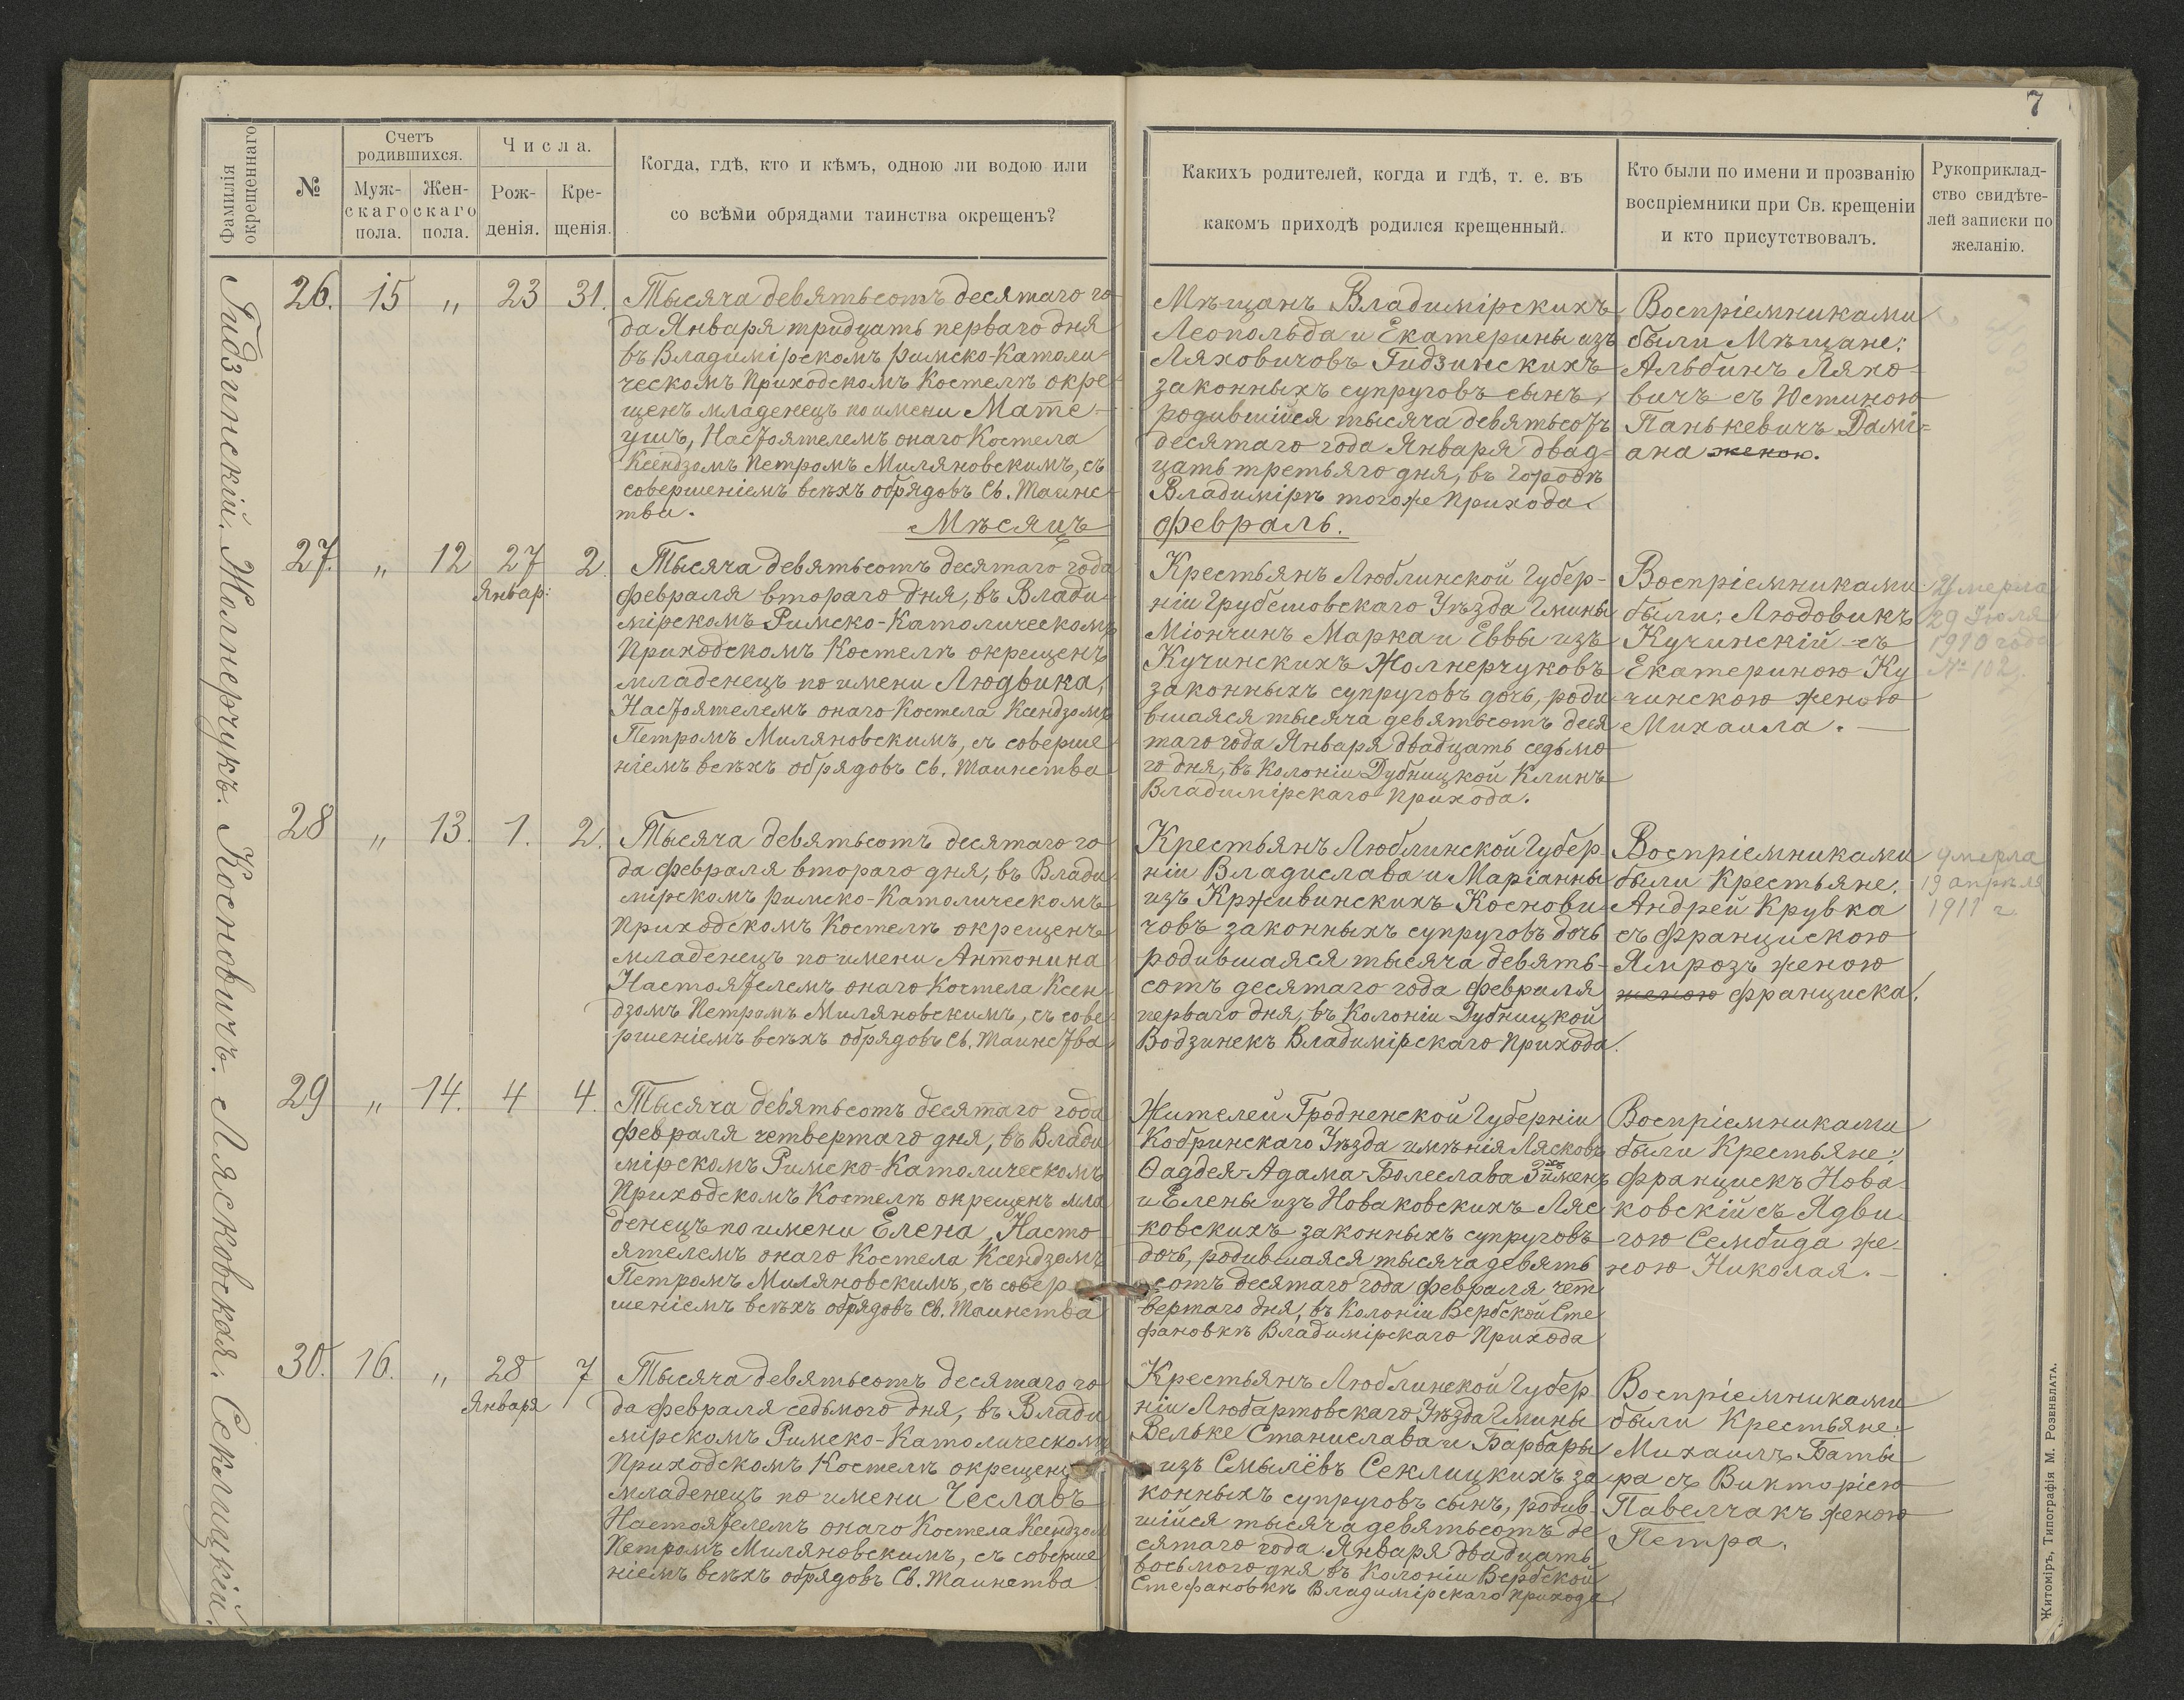 7
Фамилія
окрещеннаго
№
Счетъ
родившихся.
Муж-
скаго
пола.
Жен-
скаго
пола.
Числа.
Рож-
денія.
Кре-
щенія.
Когда, гдѣ, кто и кѣмъ, одною ли водою или
со всѣми обрядами таинства окрещенъ?
Какихъ родителей, когда и гдѣ, т. е. въ
какомъ приходѣ родился крещенный.
Кто были по имени и прозванію
воспріемники при Св. крещеніи
и кто присутствовалъ.
Рукоприклад-
ство свидѣте-
лей записки по
желанію.
Гидзинскій. Жолнерчукъ. Косновичъ. Лясковская. Секлицкій.
26. 15 „ 23 31.
Тысяча девятьсотъ десятаго го-
да Января тридцать перваго дня
въ Владимірскомъ римско-Католи-
ческомъ Приходскомъ Костелѣ окре-
щенъ младенецъ по имени Мате-
ушъ, Настоятелемъ онаго Костела
Ксендзомъ Петромъ Миляновскимъ, съ
совершеніемъ всѣхъ обрядовъ Св. Таинс-
тва.
Мѣщанъ Владимірскихъ
Леопольда и Екатерины изъ
Ляховичовъ Гидзинскихъ
законныхъ супруговъ сынъ,
родившійся тысяча девятьсотъ
десятаго года Января двад-
цать третьяго дня, въ Городѣ
Владимірѣ тогоже Прихода.
Воспріемниками
были Мѣщане:
Альбинъ Ляхо-
вичъ съ Юстиною
Панькевичъ Дамі-
ана женою.
Мѣсяцъ
Февраль.
27. „ 12 27 2
Январ:
Тысяча девятьсотъ десятаго года
Февраля втораго дня, въ Влади-
мірскомъ Римско-Католическомъ
Приходскомъ Костелѣ окрещенъ
младенецъ по имени Людвика,
Настоятелемъ онаго Костела Ксендзомъ
Петромъ Миляновскимъ, съ соверше-
ніемъ всѣхъ обрядовъ Св. Таинства
Крестьянъ Люблинской Губер-
ніи Грубешовскаго Уѣзда Гмины
Міончинъ Марка и Еввы изъ
Кучинскихъ Жолнерчуковъ
законныхъ супруговъ дочь, роди-
вшаяся тысяча девятьсотъ деся
таго года Января двадцать седьмо-
го дня, въ Колоніи Дубницкой Клинъ
Владимірскаго Прихода.
Воспріемниками
были: Людовикъ
Кучинскій съ
Екатериною Ку
чинскою женою
Михаила.
Умерла
29 Іюля
1910 года
№ 102.
28 „ 13. 1. 2.
Тысяча девятьсотъ десятаго го-
да Февраля втораго дня, въ Влади
мірскомъ римско-Католическомъ
Приходскомъ Костелѣ окрещенъ
младенецъ по имени Антонина
Настоятелемъ онаго Костела Ксен-
дзомъ Петромъ Миляновскимъ, съ сове-
ршеніемъ всѣхъ обрядовъ Св. Таинства
Крестьянъ Люблинской Губер
ніи Владислава и Маріанны
изъ Крживинскихъ Коснови-
човъ законныхъ супруговъ дочь
родившаяся тысяча девять-
сотъ десятаго года Февраля
перваго дня, въ Колоніи Дубницкой
Водзинекъ Владимірскаго Прихода.
Воспріемниками
были Крестьяне:
Андрей Крувка
съ Францискою
Ямрозъ женою
женою Франциска.
умерла
19 апрѣля
1911 г.
29 „ 14. 4 4.
Тысяча девятьсотъ десятаго года
Февраля четвертаго дня, въ Влади
мірскомъ Римско-Католическомъ
Приходскомъ Костелѣ окрещенъ мла
денецъ по имени Елена, Насто
ятелемъ онаго Костела Ксендзомъ
Петромъ Миляновскимъ, съ совер-
шеніемъ всѣхъ обрядовъ Св. Таинства
Жителей Гродненской Губерніи
Кобринскаго Уѣзда имѣнія Лясковъ
Ѳаддея-Адама-Болеслава 3хъ именъ
и Елены изъ Новаковскихъ Ляс-
ковскихъ законныхъ супруговъ
дочь, родившаяся тысяча девять
сотъ десятаго года Февраля чет
вертаго дня, въ Колоніи Вербской Сте
фановкѣ Владимірскаго Прихода
Воспріемниками
были Крестьяне:
Францискъ Нова-
ковскій съ Ядви-
гою Сембида же-
ною Николая.
30. 16. „ 28 7
Января
Тысяча девятьсотъ десятаго го-
да Февраля седьмого дня, въ Влади
мірскомъ Римско-Католическомъ
Приходскомъ Костелѣ окрещенъ
младенецъ по имени Чеславъ
Настоятелемъ онаго Костела Ксендзом
Петромъ Миляновскимъ, съ соверше
ніемъ всѣхъ обрядовъ Св. Таинства
Крестьянъ Люблинской Губер
ніи Любартовскаго Уѣзда Гмины
Вельке Станислава и Барбары
изъ Смылёвъ Секлицкихъ за-
конныхъ супруговъ сынъ, родив
шійся тысяча девятьсотъ де
сятаго года Января двадцать
восьмого дня въ Колоніи Вербской
Стефановкѣ Владимірскаго прихода
Воспріемниками
были Крестьяне:
Михаилъ Баты-
ра съ Викторіею
Павелчакъ женою
Петра.
Житоміръ, Типографія М. Розенблата.